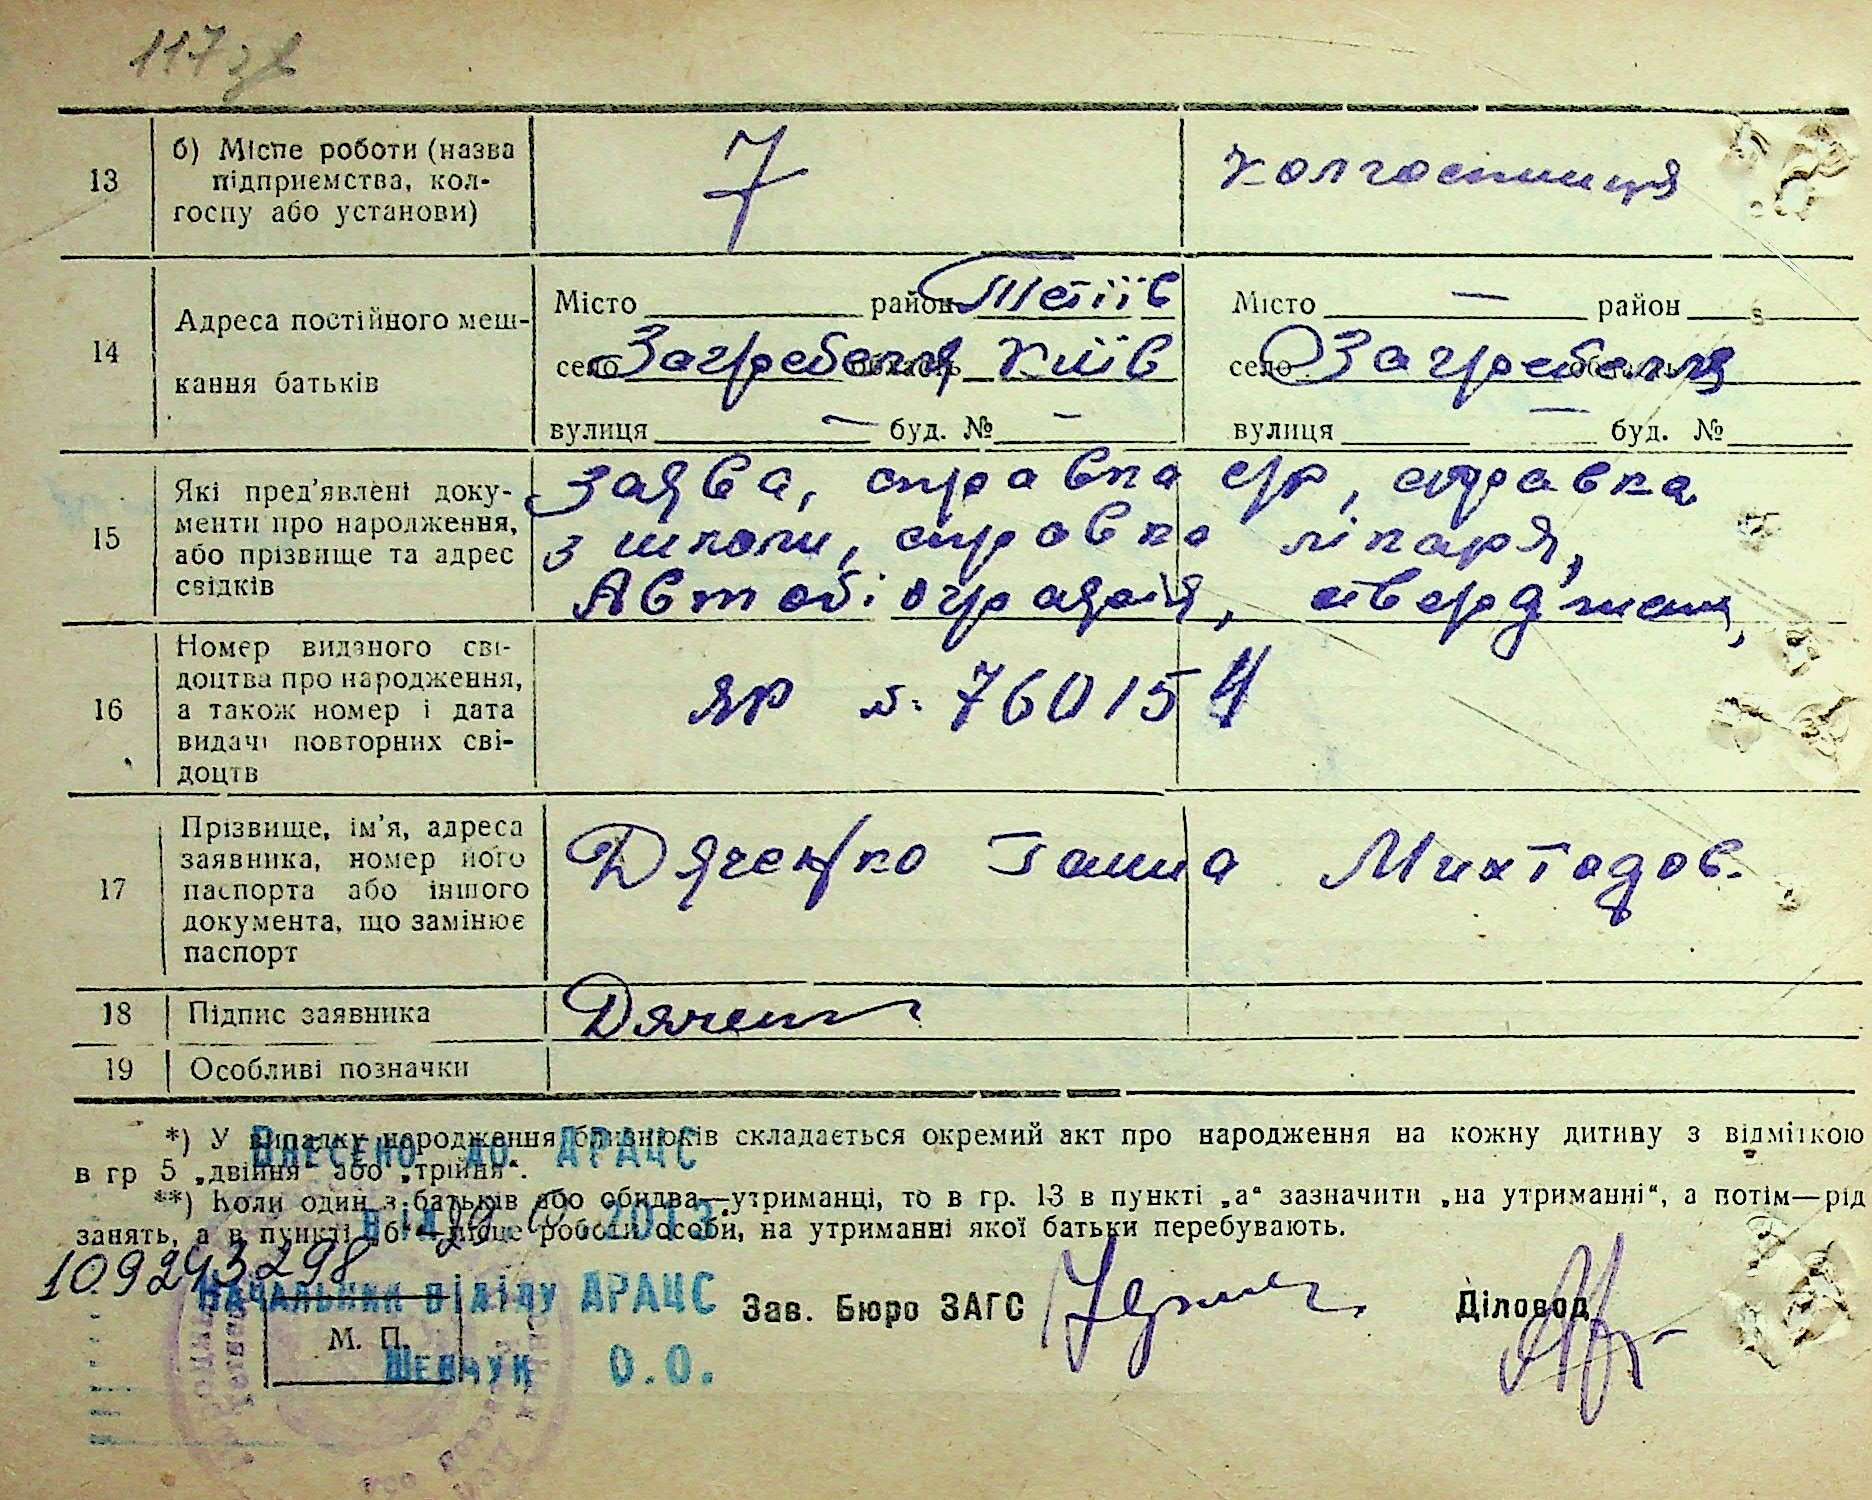 117 зв
13 б) Місце роботи (назва підприємства, колгоспу або установи) 7 колгоспниця
14 Адреса постійного мешкання батьків
Місто район Тетіїв Місто — район
село Загребелля Київ село Загребелля
вулиця — буд. № — вулиця — буд. №
15 Які пред'явлені документи про народження, або прізвище та адрес свідків
Заява, справка с/р, справка
з школи, справка лікаря,
Автобіографія, ствердження,
16 Номер виданого свідоцтва про народження, а також номер і дата видачі повторних свідоцтв
ЯР №. 760154
17 Прізвище, ім'я, адреса заявника, номер його паспорта або іншого документа, що замінює паспорт
Дяченко Ганна
18 Підпис заявника Дяченк
19 Особливі позначки
*) У випадку народження близнюків складається окремий акт про народження на кожну дитину з відміткою
в гр 5 „двійня“ або „трійня“.
**) Коли один з батьків або обидва—утриманці, то в гр. 13 в пункті „а“ зазначити „на утриманні“, а потім—рід
занять, а в пункті „б“—місце роботи особи, на утриманні якої батьки перебувають.
Внесено до ДРАЦС
2013
109243298
Начальник відділу ДРАЦС
Шевчук О.О.
М. П.
Зав. Бюро ЗАГС
Діловод